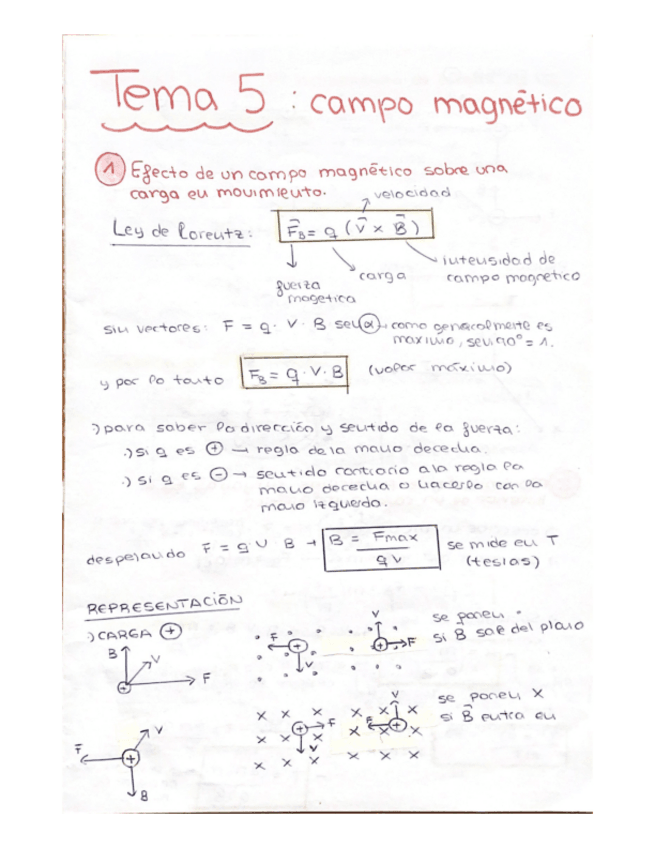 Tema 5 : campo magnético
1 Efecto de un campo magnético sobre una
carga en movimiento.
velocidad
Ley de Lorentz: F⃗B = q (v⃗ x B⃗)
intensidad de
campo magnetico
carga
fuerza
magetica
sin vectores: F = q · V · B sen α → como generalmente es
maximo, sen 90° = 1.
y por lo tanto FB = q · V · B (valor máximo)
) para saber la dirección y sentido de la fuerza:
·) si q es + → regla de la mano derecha.
·) si q es - → sentido contrario a la regla la
mano derecha o hacerlo con la
mano izquierda.
despejando F = q · V · B → B = Fmax / q V se mide en T
(teslas)
REPRESENTACIÓN
) CARGA +
B V F
F V
V F
se ponen ·
si B⃗ sale del plano
F V B
V F
V F
se ponen X
si B⃗ entra en